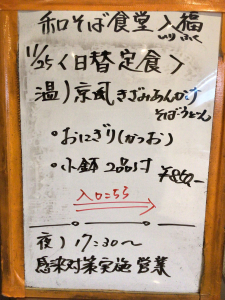 和そば食堂 入福
いり ふく
11/25 〈日替定食〉
温)京風きざみあんかけ
そば・うどん
・おにぎり(かつお)
・小鉢 2品付 ¥850-
入口こちら
夜) 17:30〜
感染対策実施 営業